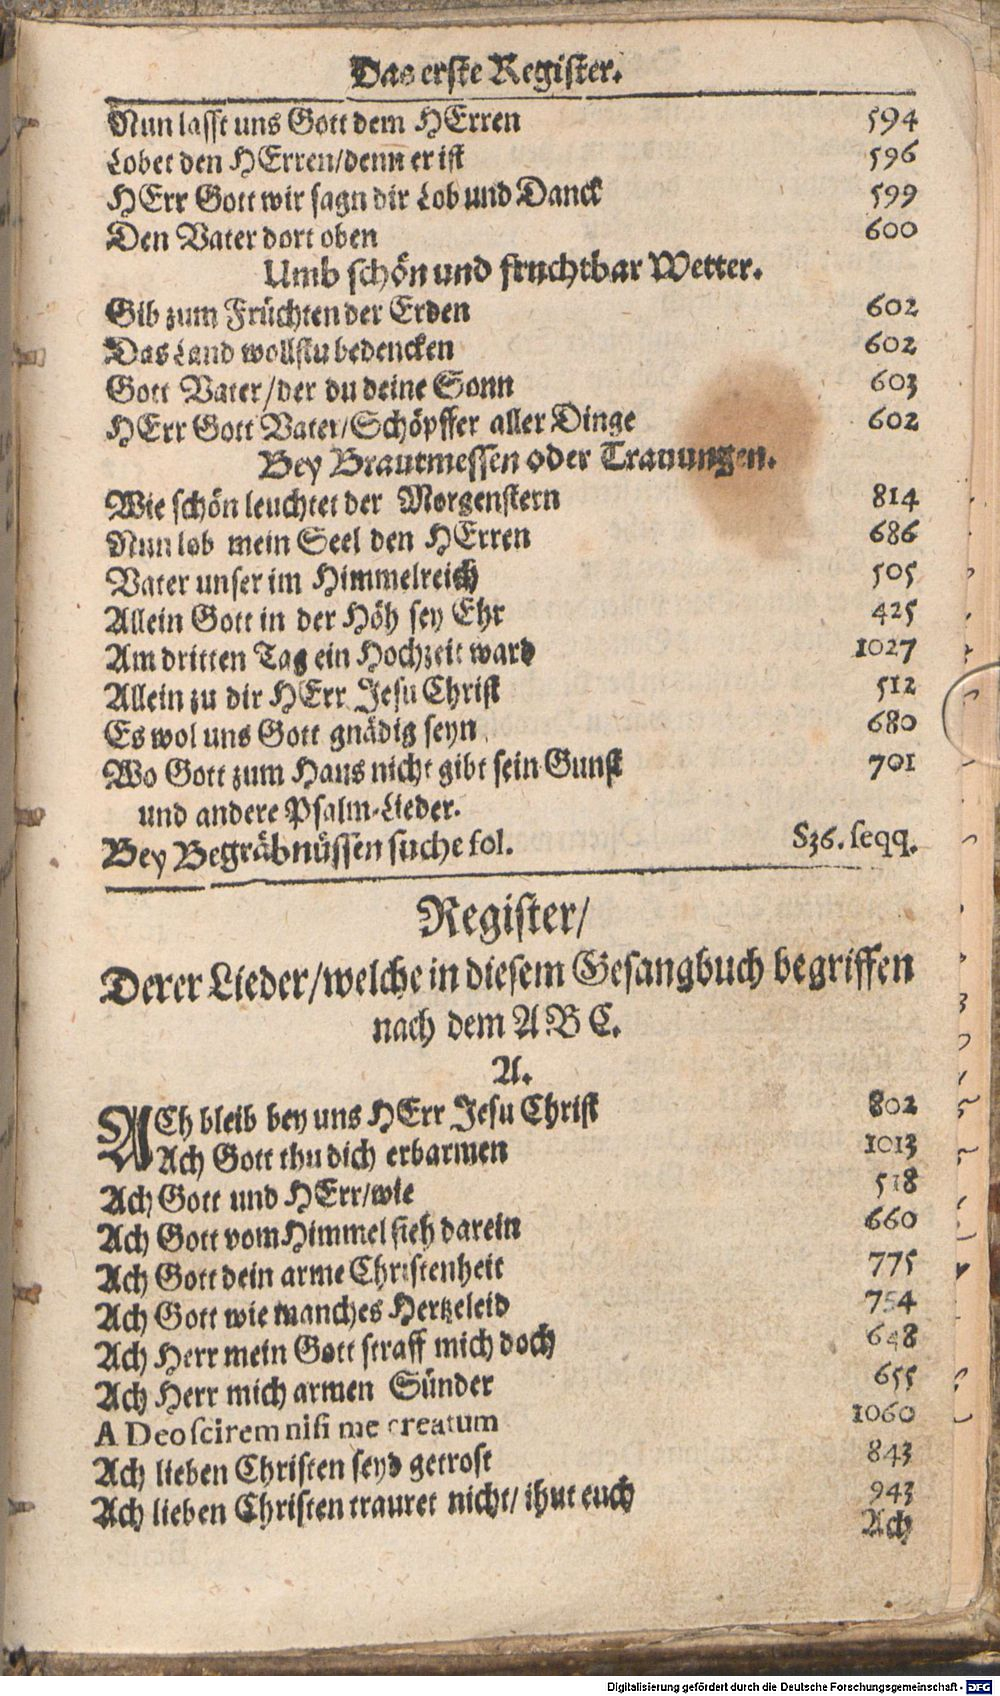 Das erste Register.
Nun lasst uns Gott dem HErren 594
Lobet den HErren/denn er ist 596
HErr Gott wir sagn dir Lob und Danck 599
Den Vater dort oben 600
Umb schön und fruchtbar Wetter.
Gib zum Früchten der Erden 602
Das Land wollstu bedencken 602
Gott Vater/der du deine Sonn 603
HErr Gott Vater/Schöpffer aller Dinge 602
Bey Brautmessen oder Trauungen.
Wie schön leuchtet der Morgenstern 814
Nun lob mein Seel den HErren 686
Vater unser im Himmelreich 505
Allein Gott in der Höh sey Ehr 425
Am dritten Tag ein Hochzeit ward 1027
Allein zu dir HErr Jesu Christ 512
Es wol uns Gott gnädig seyn 680
Wo Gott zum Haus nicht gibt sein Gunst 701
und andere Psalm-Lieder.
Bey Begräbnüssen suche fol. 836. seqq.
Register/
Derer Lieder/welche in diesem Gesangbuch begriffen
nach dem A B C.
A.
ACh bleib bey uns HErr Jesu Christ 802
Ach Gott thu dich erbarmen 1013
Ach Gott und HErr/wie 518
Ach Gott vom Himmel sieh darein 660
Ach Gott dein arme Christenheit 775
Ach Gott wie manches Hertzeleid 754
Ach Herr mein Gott straff mich doch 648
Ach Herr mich armen Sünder 655
A Deo scirem nisi me creatum 1060
Ach lieben Christen seyd getrost 843
Ach lieben Christen trauret nicht/ ihut euch 943
Ach
Digitalisierung gefördert durch die Deutsche Forschungsgemeinschaft - DFG